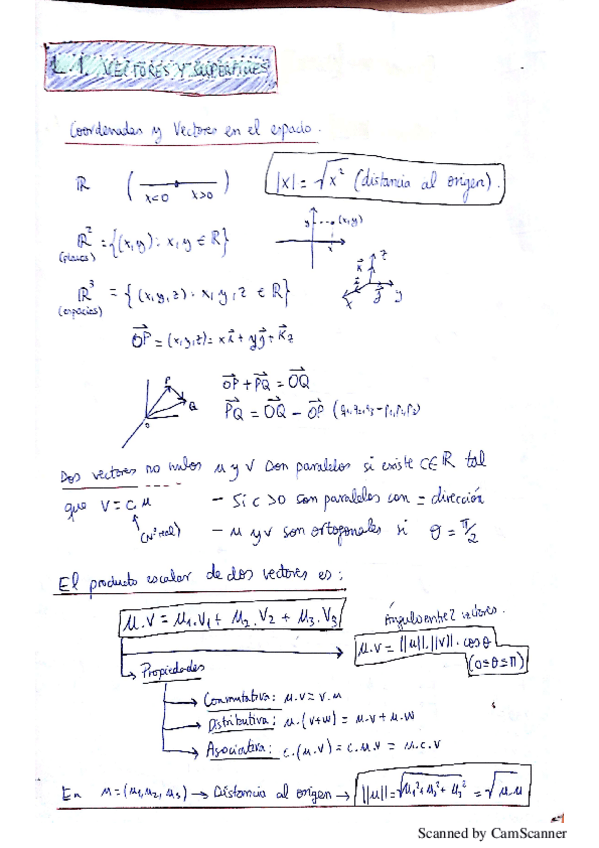 L.1. VECTORES Y SUPERFICIES
Coordenadas y Vectores en el espacio.
ℝ ( x<0 x>0 ) |x| = √x² (distancia al origen).
ℝ² = {(x,y): x,y ∈ ℝ} y (x,y) x
(planos)
ℝ³ = {(x,y,z): x,y,z ∈ ℝ} z k⃗ j⃗ y x
(espacios)
OP⃗ = (x,y,z) = x i⃗ + y j⃗ + k⃗ z
P Q O
OP⃗ + PQ⃗ = OQ⃗
PQ⃗ = OQ⃗ − OP⃗ (q₁,q₂,q₃ − p₁,p₂,p₃)
Dos vectores no nulos u y v son paralelos si existe C∈ℝ tal
que v = c.u – Si c > 0 son paralelos con = dirección
(nº real) – u y v son ortogonales si θ = π/2
El producto escalar de dos vectores es:
u.v = u₁.v₁ + u₂.v₂ + u₃.v₃
Ángulo entre 2 vectores.
u.v = ||u||.||v||. cosθ
(0≤θ≤π)
Propiedades
Conmutativa: u.v = v.u
Distributiva: u.(v+w) = u.v + u.w
Asociativa: c.(u.v) = c.u.v = u.c.v
En u = (u₁,u₂,u₃) → Distancia al origen → ||u|| = √u₁²+u₂²+u₃² = √u.u
Scanned by CamScanner